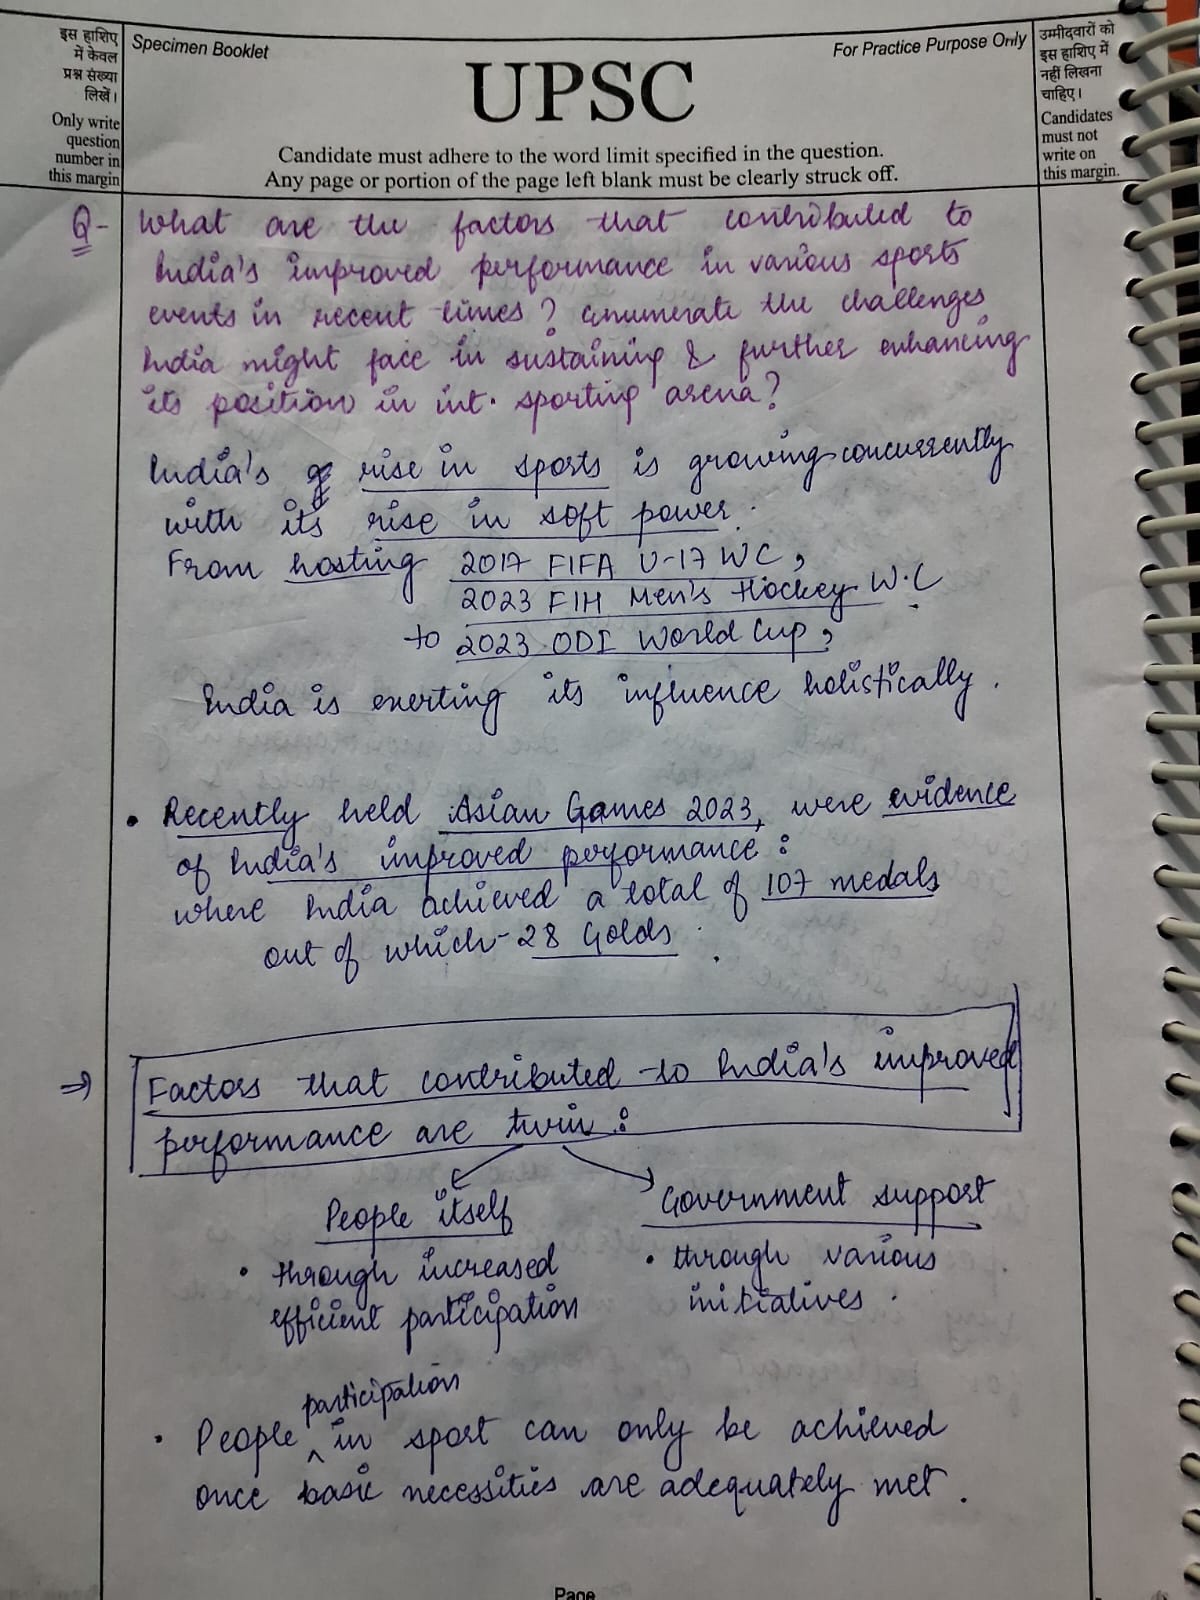 इस हाशिए
में केवल
प्रश्न संख्या
लिखें।
Only write
question
number in
this margin
Specimen Booklet
For Practice Purpose Only
UPSC
Candidate must adhere to the word limit specified in the question.
Any page or portion of the page left blank must be clearly struck off.
उम्मीदवारों को
इस हाशिए में
नहीं लिखना
चाहिए।
Candidates
must not
write on
this margin.
Q- What are the factors that contributed to
India's improved performance in various sports
events in recent times? Enumerate the challenges
India might face in sustaining & further enhancing
its position in int. sporting arena?
India's rise in sports is growing concurrently
with its rise in soft power.
From hosting 2017 FIFA U-17 WC,
2023 FIH Men's Hockey W.C
to 2023 ODI World Cup,
India is exerting its influence holistically.
• Recently held Asian Games 2023, were evidence
of India's improved performance:
where India achieved a total of 107 medals
out of which - 28 Golds.
⇒ Factors that contributed to India's improved
performance are twin:
People itself
• through increased
efficient participation
Government support
• through various
initiatives.
participation
• People ^ in sport can only be achieved
once basic necessities are adequately met.
Page